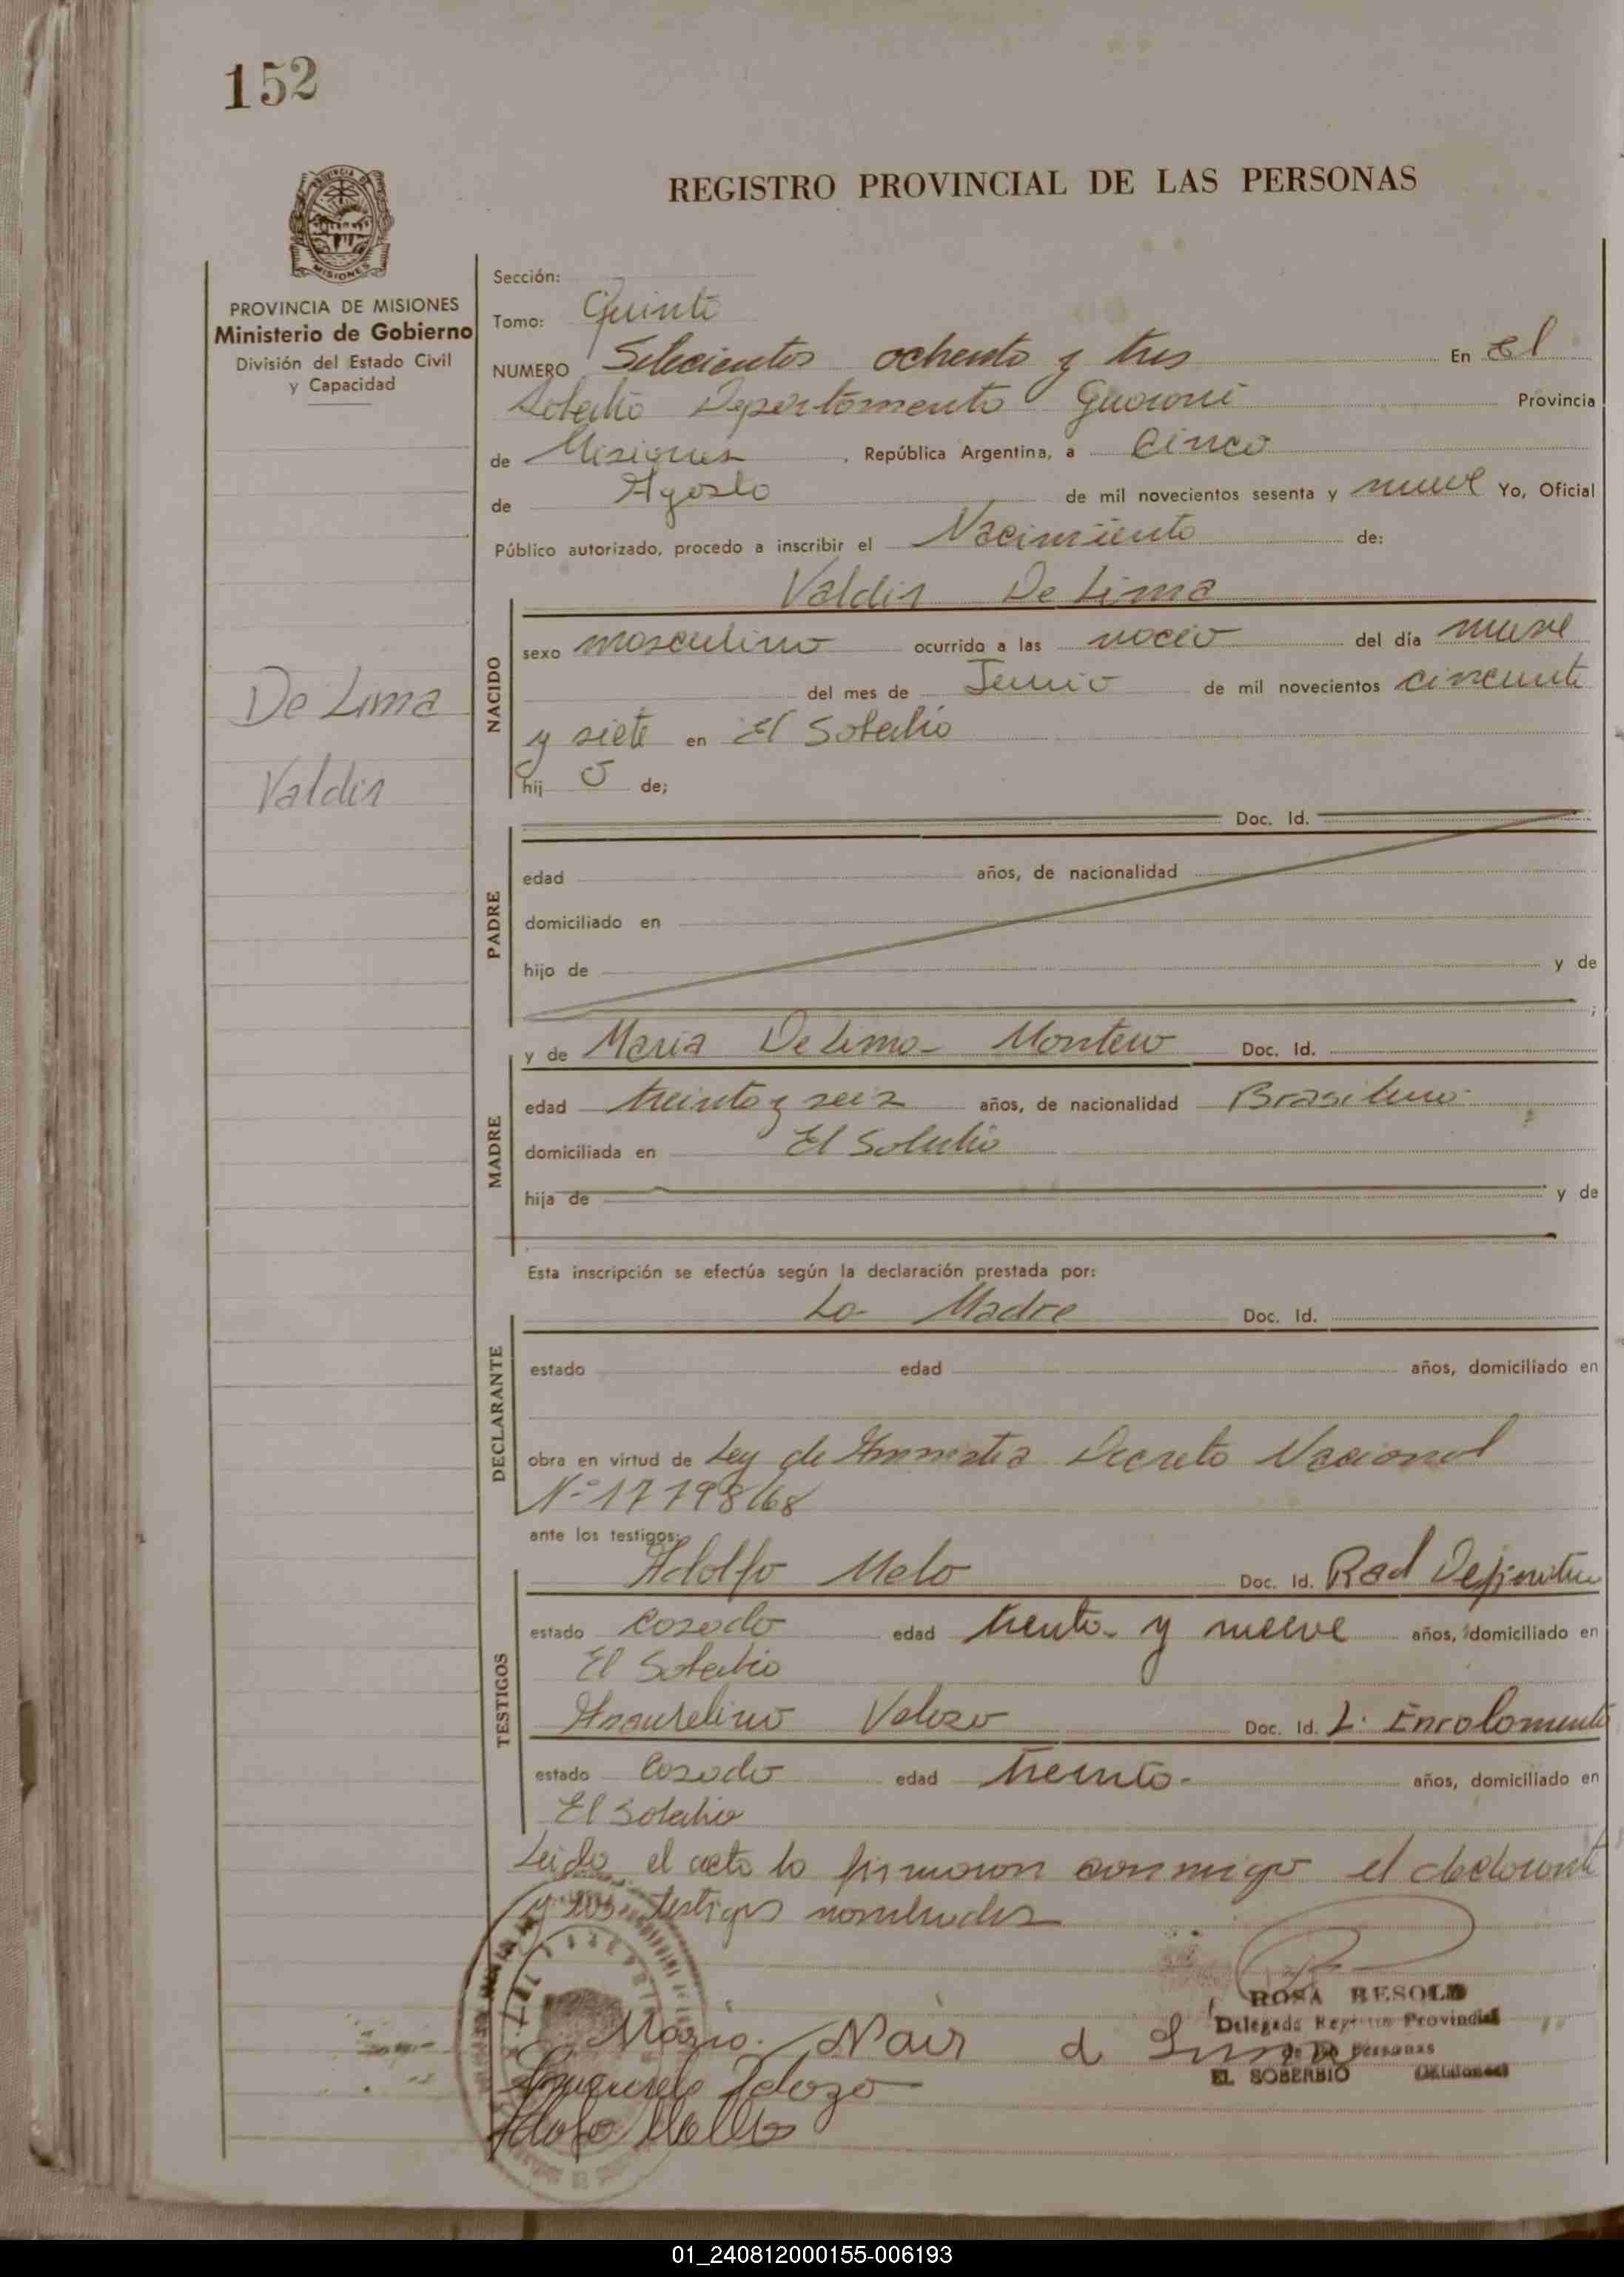 152
REGISTRO PROVINCIAL DE LAS PERSONAS
PROVINCIA DE MISIONES
Ministerio de Gobierno
División del Estado Civil
y Capacidad
De Lima
Valdir
Sección:
Tomo: Quinto
NUMERO Setecientos ochenta y tres En El
Soberbio Departamento Guarani Provincia
de Misiones, República Argentina, a Cinco
de Agosto de mil novecientos sesenta y nueve Yo, Oficial
Público autorizado, procedo a inscribir el Nacimiento de:
Valdir De Lima
NACIDO
sexo masculino ocurrido a las nacio del día nueve
del mes de Junio de mil novecientos cincuenta
y siete en El Soberbio
hij o de;
PADRE
Doc. Id.
edad años, de nacionalidad
domiciliado en
hijo de y de
;
MADRE
y de Maria De Lima Doc. Id.
edad treinta y seis años, de nacionalidad Brasilera
domiciliada en El Soberbio
hija de y de
Esta inscripción se efectúa según la declaración prestada por:
DECLARANTE
La Madre Doc. Id.
estado edad años, domiciliado en
obra en virtud de Ley de Amnistia Decreto Nacional
Nº 17798/68
ante los testigos:
TESTIGOS
Adolfo Melo Doc. Id. Rad Definitiva
estado Casado edad treinta y nueve años, domiciliado en
El Soberbio
Velozo Doc. Id. L. Enrolamiento
estado Casado edad treinta años, domiciliado en
El Soberbio
Leida el acta la firmaron conmigo el declarante
y los testigos nombrados
ROSA BESOLD
Delegada Registro Provincial
de las Personas
EL SOBERBIO (Misiones)
Maria Nair d Lima
Velozo
Adolfo Mello
01_240812000155-006193